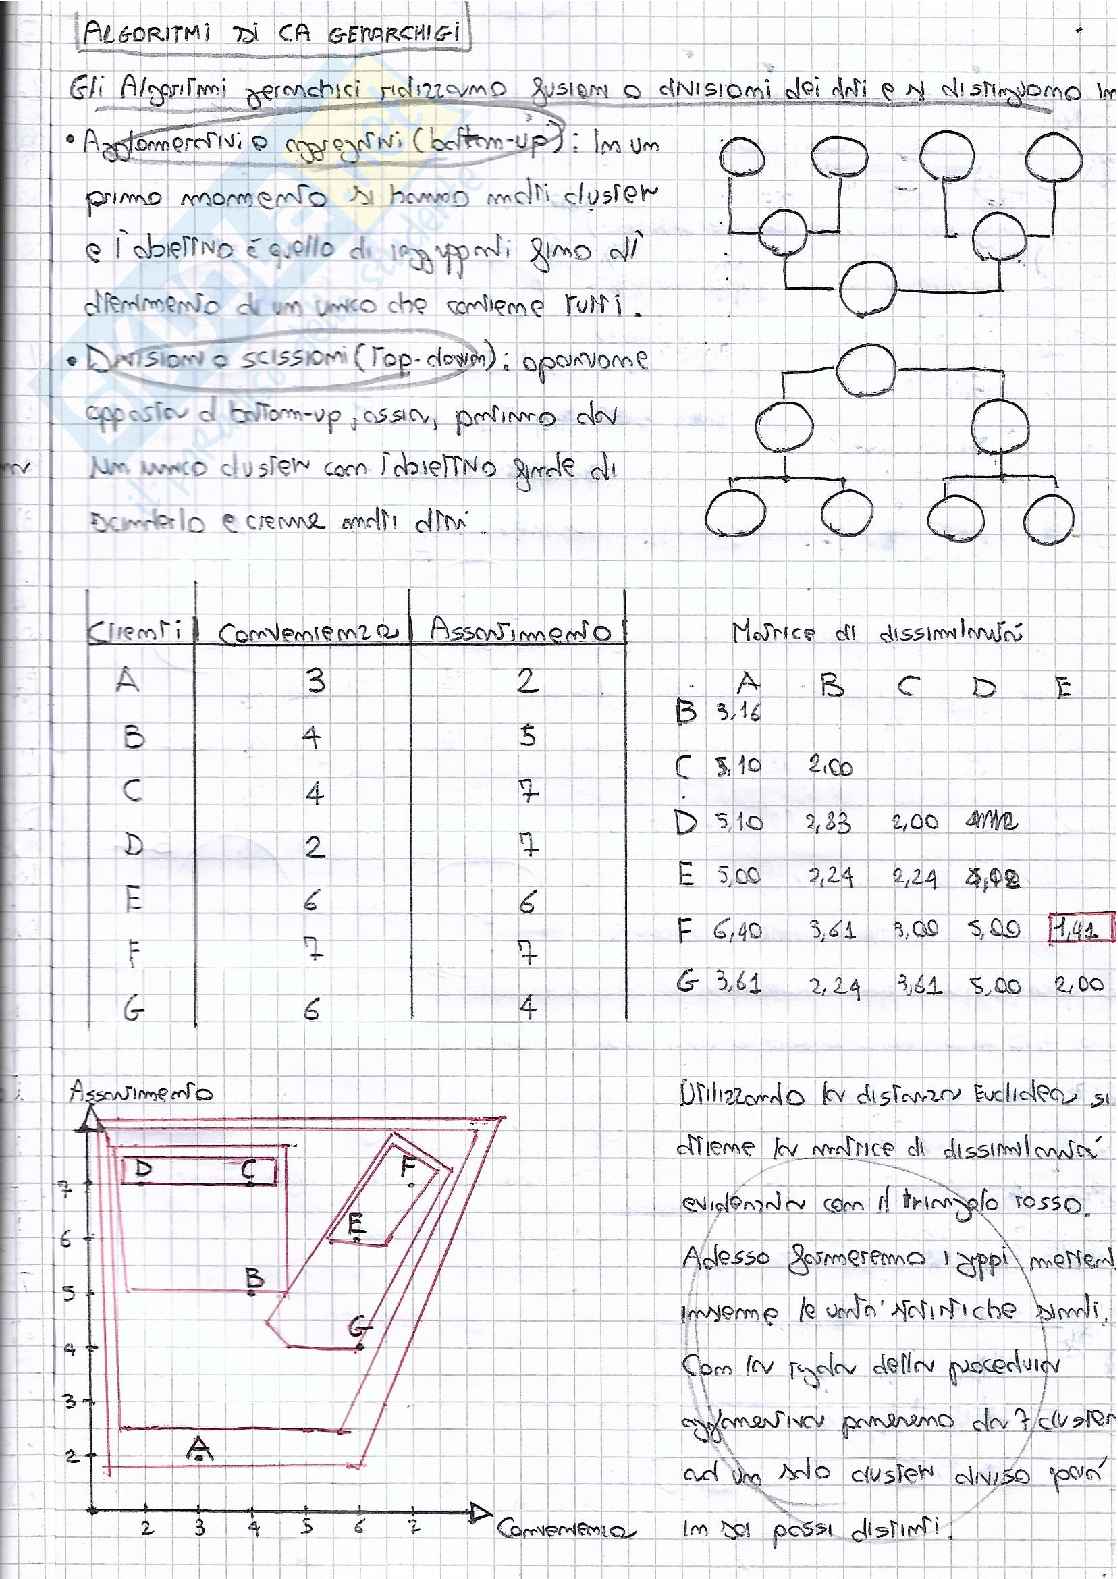 ALGORITMI DI CA GERARCHICI
Gli Algoritmi gerarchici realizzano fusioni o divisioni dei dati e si distinguono in
• Agglomerativi o aggregativi (bottom-up): In un
primo momento si hanno molti cluster
e l'obiettivo è quello di raggrupparli fino all'
ottenimento di un unico che contiene tutti.
• Divisioni o scissioni (top-down): operazione
opposta al bottom-up, ossia, partiamo da
un unico cluster con l'obiettivo finale di
scinderlo e crearne molti altri.
Clienti Convenienza Assortimento
A 3 2
B 4 5
C 4 7
D 2 7
E 6 6
F 7 7
G 6 4
Matrice di dissimilarità
A B C D E
B 3,16
C 5,10 2,00
D 5,10 2,83 2,00
E 5,00 2,24 2,24 4,12
F 6,40 3,61 3,00 5,00 1,41
G 3,61 2,24 3,61 5,00 2,00
Assortimento
D C F
7
6 E
5 B
4 G
3
2 A
2 3 4 5 6 7
Convenienza
Utilizzando la distanza Euclidea si
ottiene la matrice di dissimilarità
evidenziata con il triangolo rosso.
Adesso formeremo i gruppi metten
insieme le unità statistiche simili.
Con la regola della procedura
agglomerativa partiremo da 7 cluster
ad un solo cluster diviso però
in sei passi distinti.